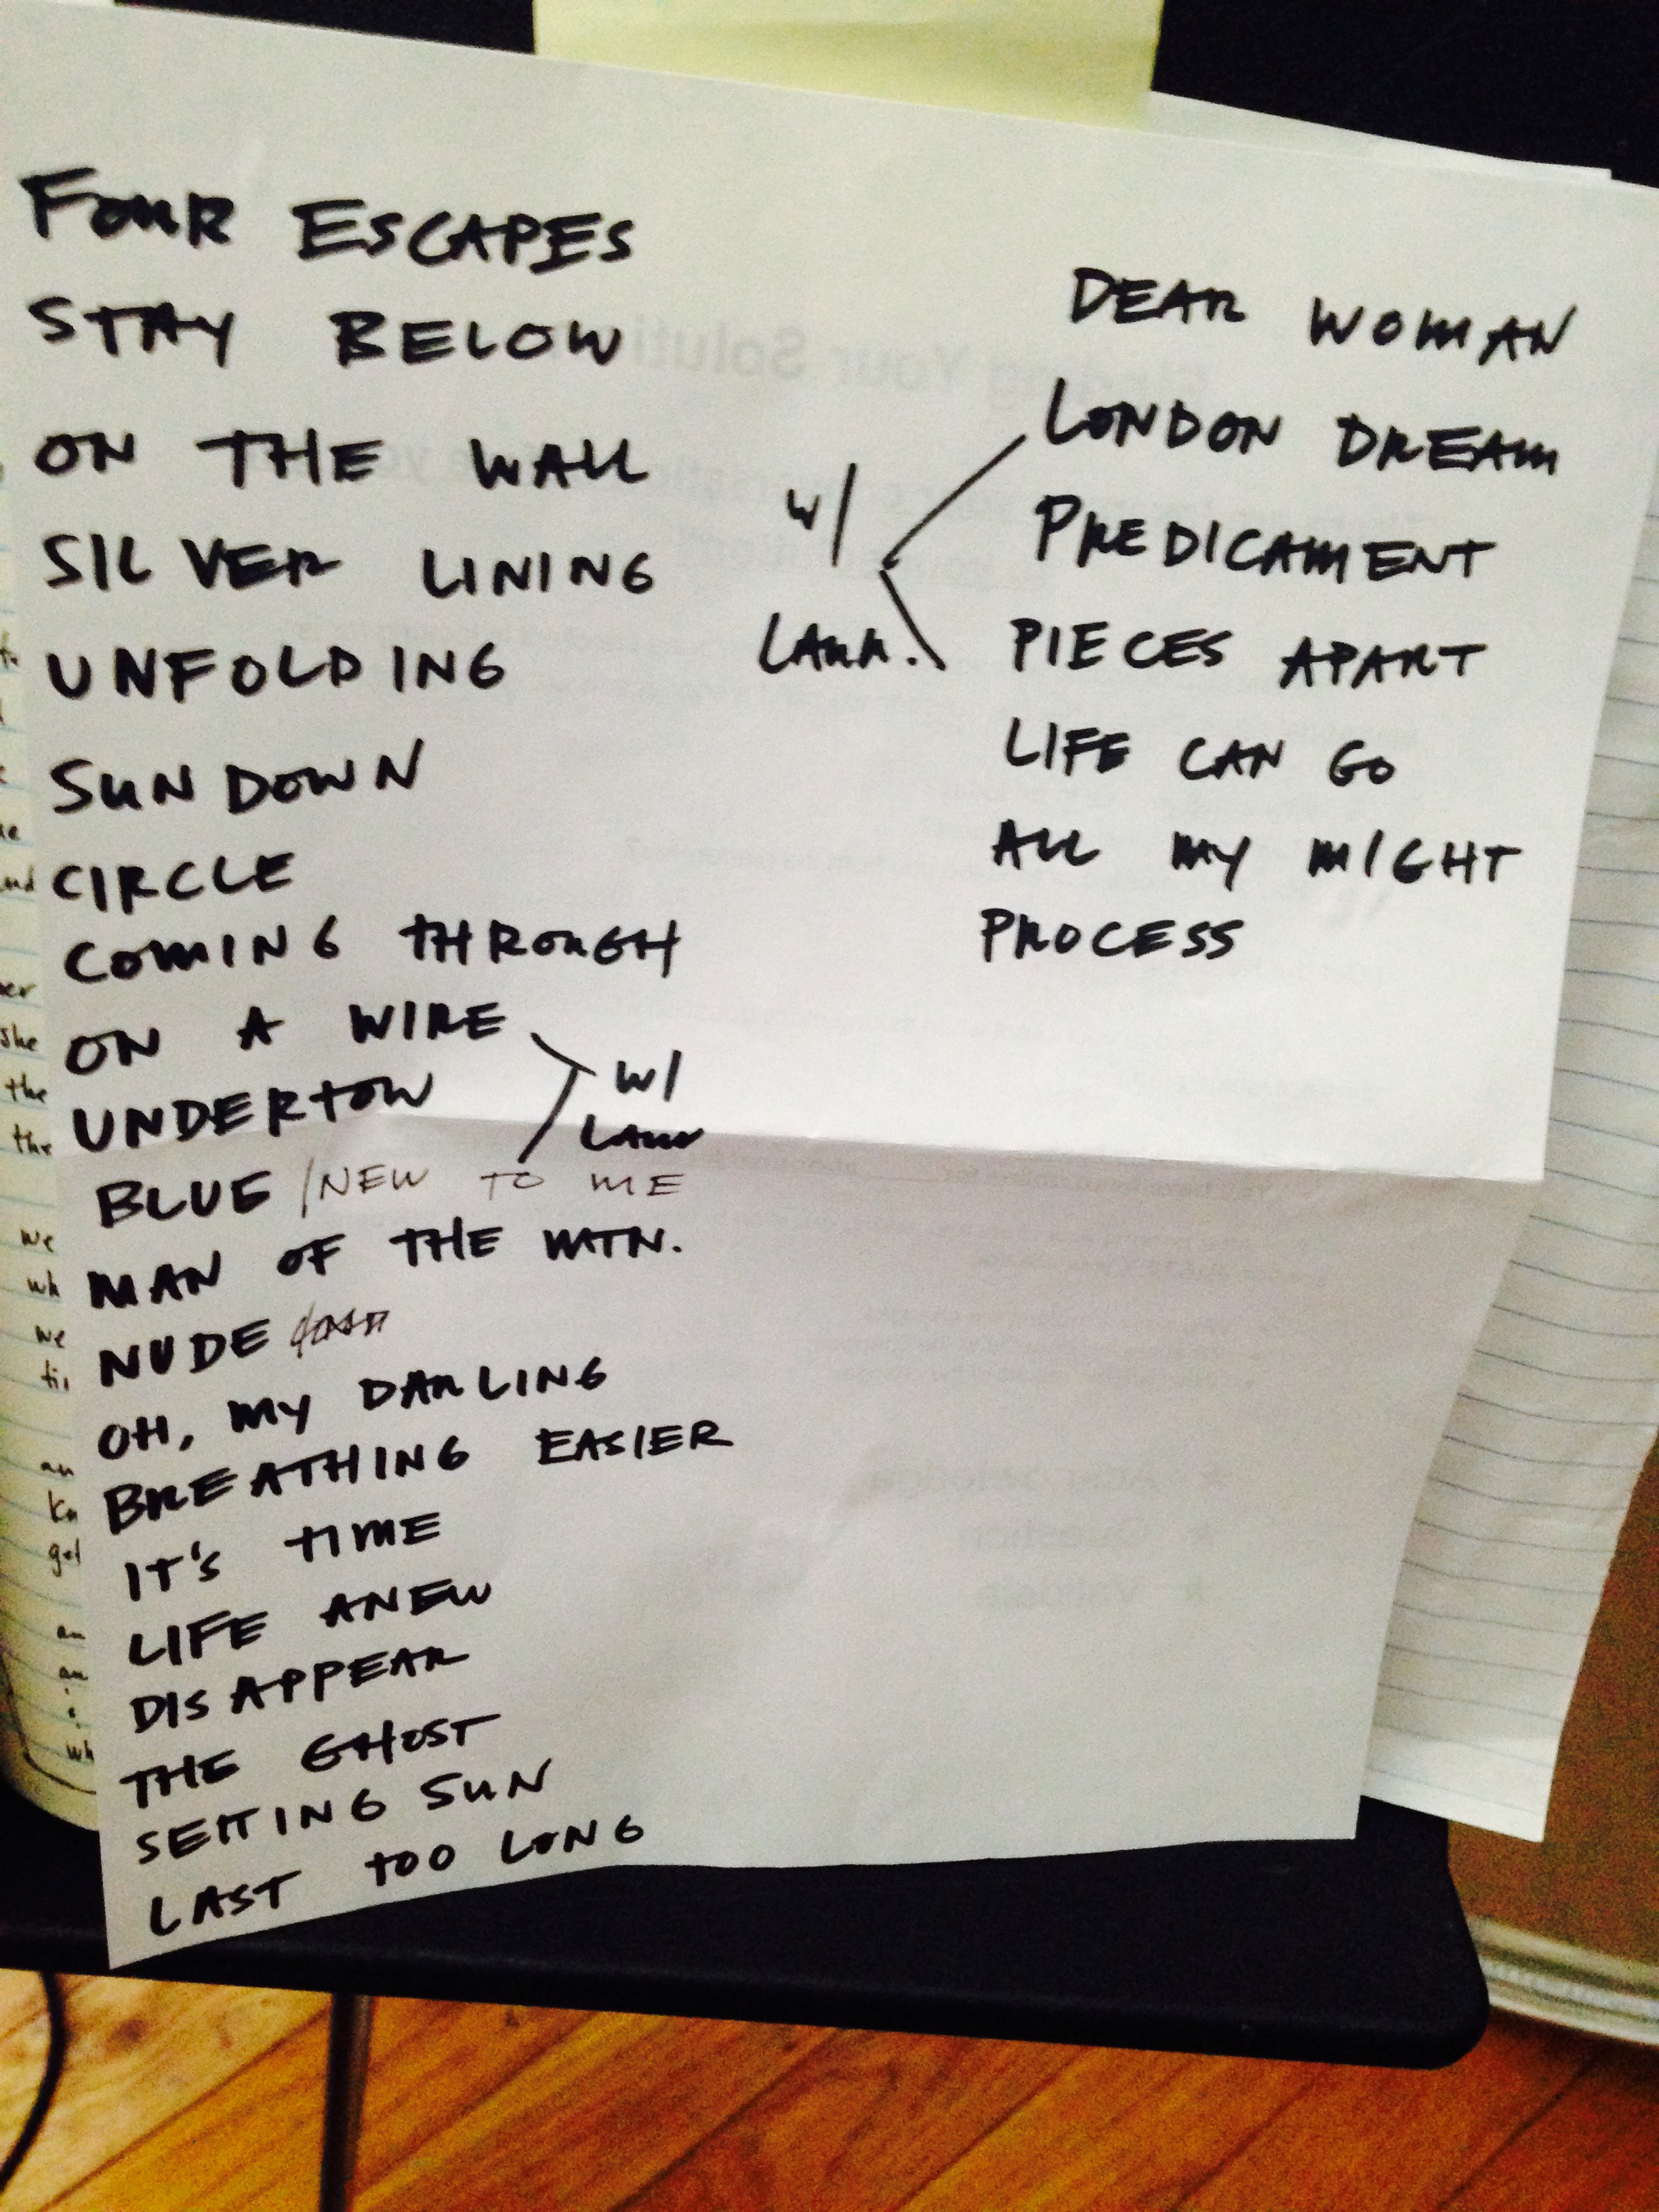 FOUR ESCAPES
STAY BELOW
ON THE WALL
SILVER LINING
UNFOLDING
SUNDOWN
CIRCLE
COMING THROUGH
ON A WIRE
UNDERTOW
W/
BLUE / NEW TO ME
MAN OF THE MTN.
NUDE
OH, MY DARLING
BREATHING EASIER
IT'S TIME
LIFE ANEW
DISAPPEAR
THE GHOST
SETTING SUN
LAST TOO LONG
DEAR WOMAN
LONDON DREAM
W/
PREDICAMENT
PIECES APART
LIFE CAN GO
ALL MY MIGHT
PROCESS
er
she
the
we
wh
we
an